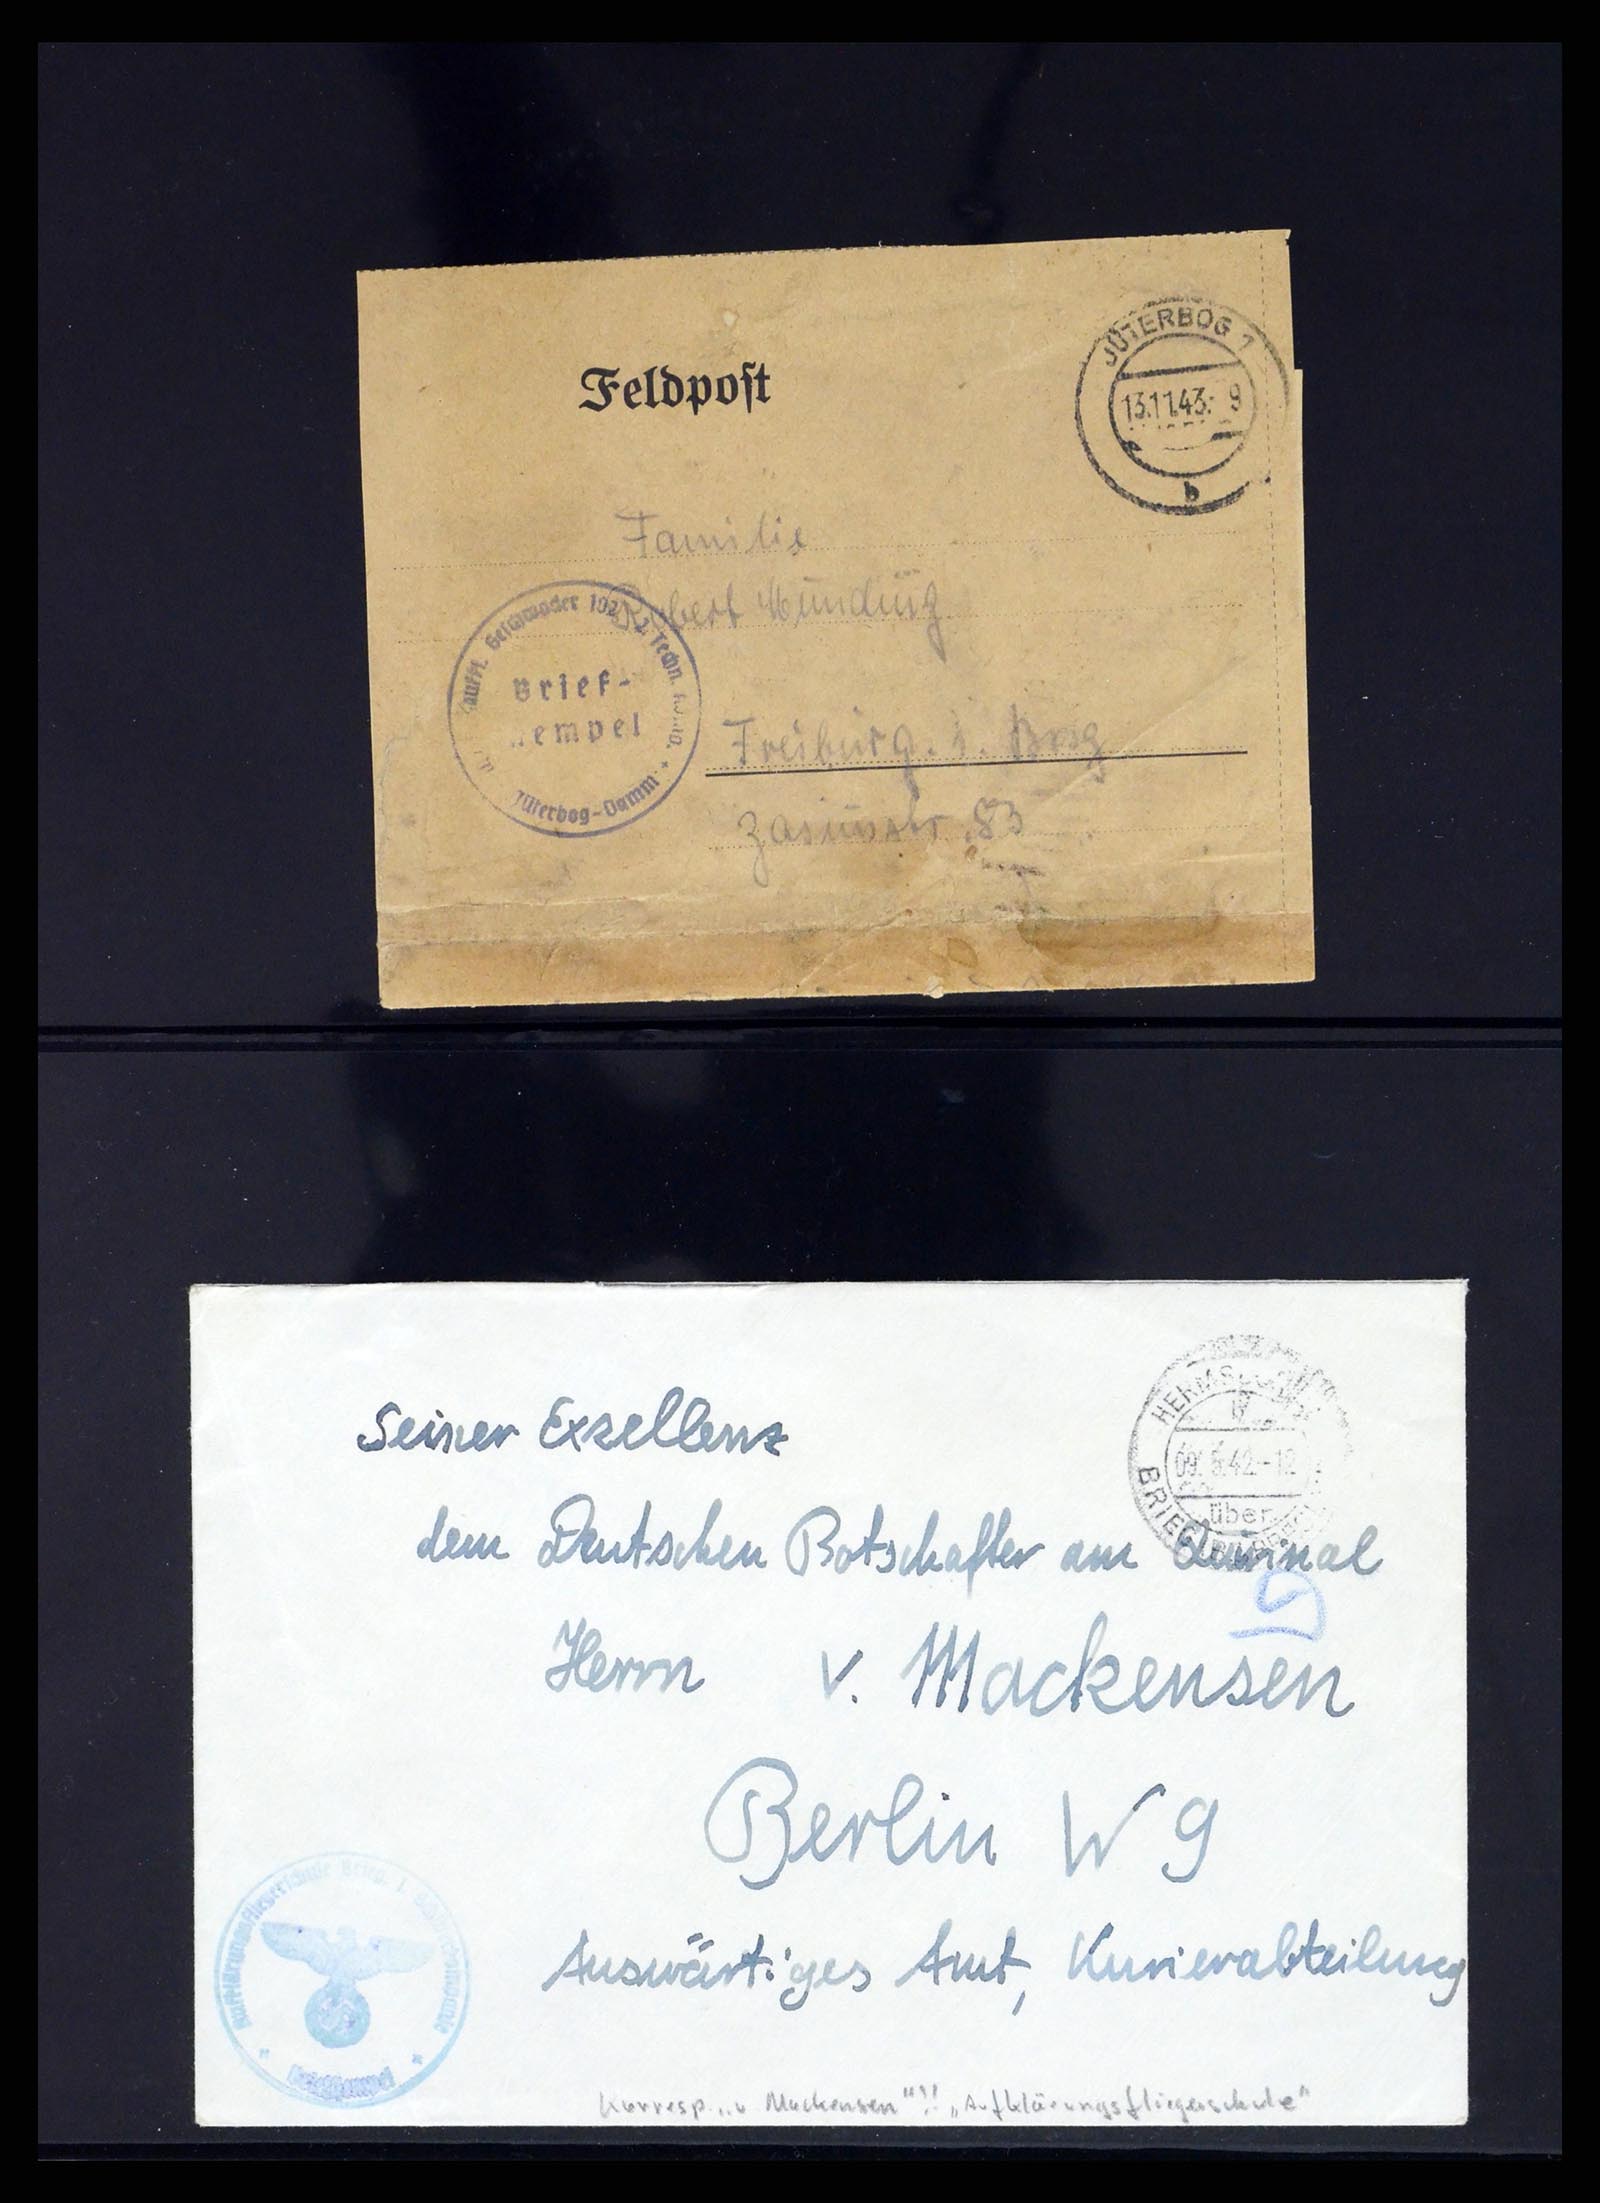 Feldpost
JÜTERBOG 1
13.11.43.- 9
b
Familie
Robert Mündüng
Freiburg. i. Brsg
Zasiusstr. 83
Luftl. Geschwader 102 Techn. Komp.
Brief-
tempel
Jüterbog-Damm
Seiner Exzellenz
dem Deutschen Botschafter am Quirinal
Herrn v. Mackensen
Berlin W 9
Auswärtiges Amt, Kurierabteilung
09. 5.42.-12
über
BRIEG
Aufklärungsfliegerschule Brieg.
Briefstempel
Korresp. „v. Mackensen"!! „Aufklärungsfliegerschule"